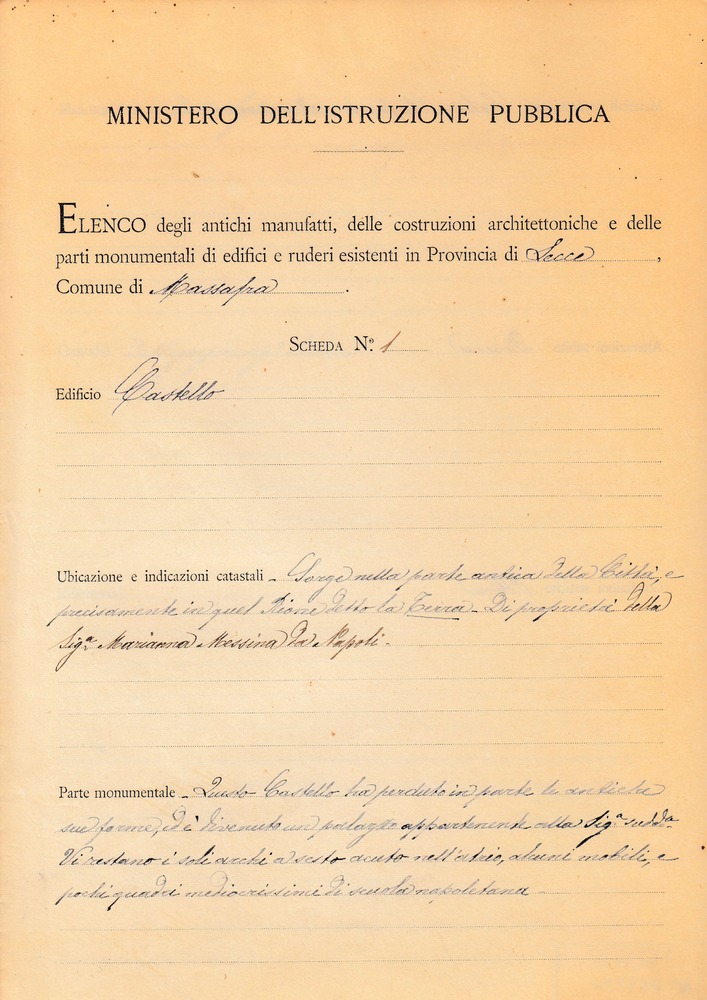 MINISTERO DELL'ISTRUZIONE PUBBLICA
ELENCO degli antichi manufatti, delle costruzioni architettoniche e delle
parti monumentali di edifici e ruderi esistenti in Provincia di Lecce,
Comune di Massafra.
SCHEDA N.º 1
Edificio Castello
Ubicazione e indicazioni catastali - Sorge nella parte antica della Città, e
precisamente in quel Rione detto la Terra - Di proprietà della
Sig.ª Marianna Messina da Napoli -
Parte monumentale - Questo Castello ha perduto in parte le antiche
sue forme, ed è divenuto un palazzo appartenente alla Sig.ª sudd.ª
Vi restano i soli archi a sesto acuto nell'atrio, alcuni mobili, e
pochi quadri mediocrissimi di scuola napoletana -